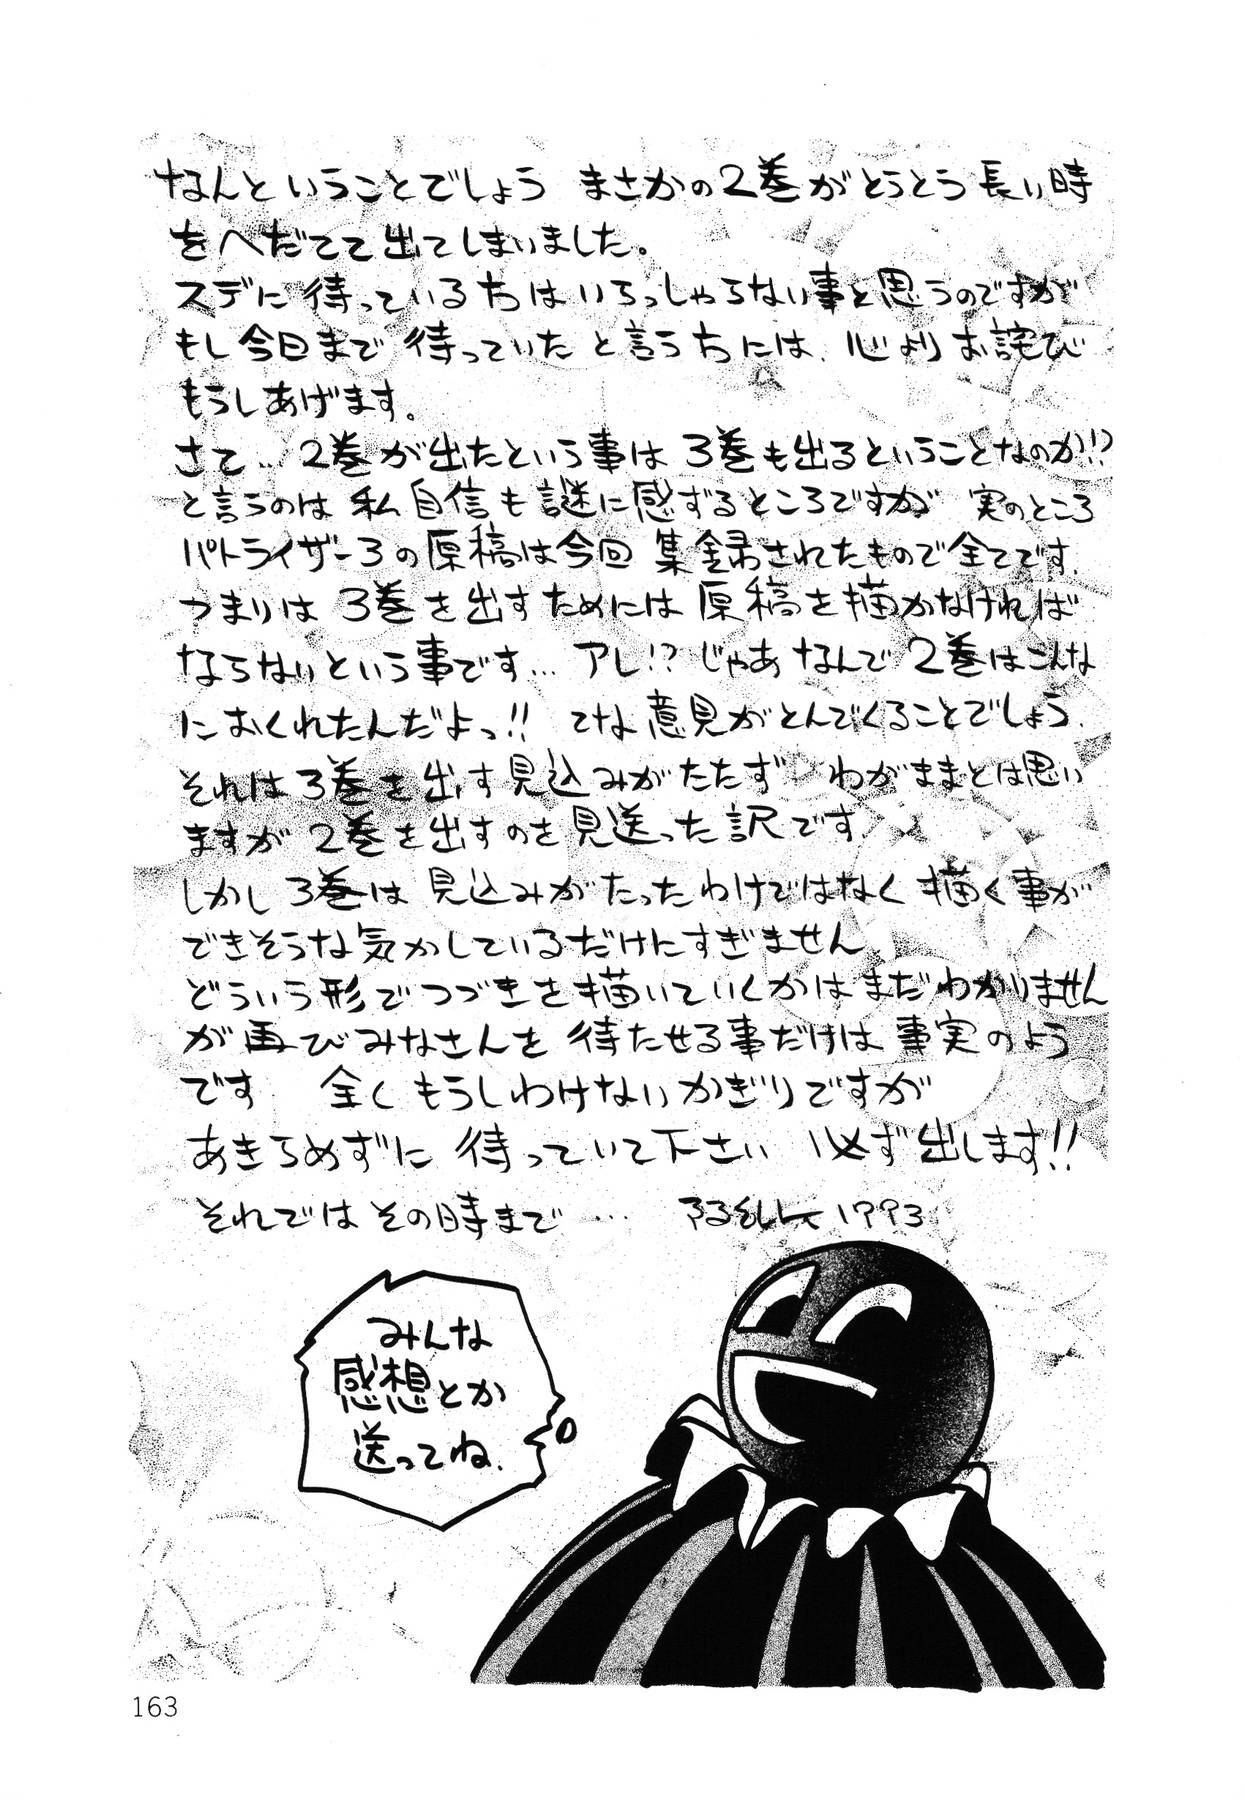 なんということでしょう まさかの2巻がとうとう長い時
をへだてて出てしまいました。
スデに待っている方はいらっしゃらない事と思うのですが
もし今日まで待っていたと言う方には、心よりお詫び
もうしあげます。
さて… 2巻が出たという事は3巻も出るということなのか!?
と言うのは私自信も謎に感ずるところですが 実のところ
パトライザー3の原稿は今回集録されたもので全てです.
つまりは3巻を出すためには原稿を描かなければ
ならないという事です… アレ!? じゃあなんで2巻はこんな
におくれたんだよっ!! てな意見がとんでくることでしょう.
それは3巻を出す見込みがたたず わがままとは思い
ますが2巻を出すのを見送った訳です.
しかし3巻は見込みがたったわけではなく描く事が
できそうな気がしているだけにすぎません.
どういう形でつづきを描いていくかはまだわかりません
が再びみなさんを待たせる事だけは事実のよう
です 全くもうしわけないかぎりですが
あきらめずに待っていて下さい 必ず出します!!
それではその時まで… 1993
みんな
感想とか
送ってね.
163